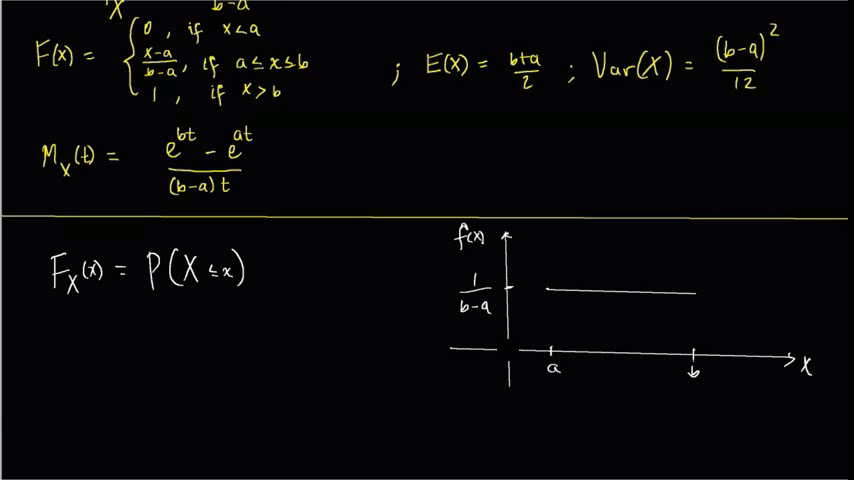 X b-a
F(x) = { 0, if x<a
x-a/b-a, if a≤x≤b
1, if x>b
; E(X) = b+a/2 ; Var(X) = (b-a)²/12
M_X(t) = e^bt - e^at / (b-a)t
F_X(x) = P(X ≤ x)
f(x)
1/b-a
a b x